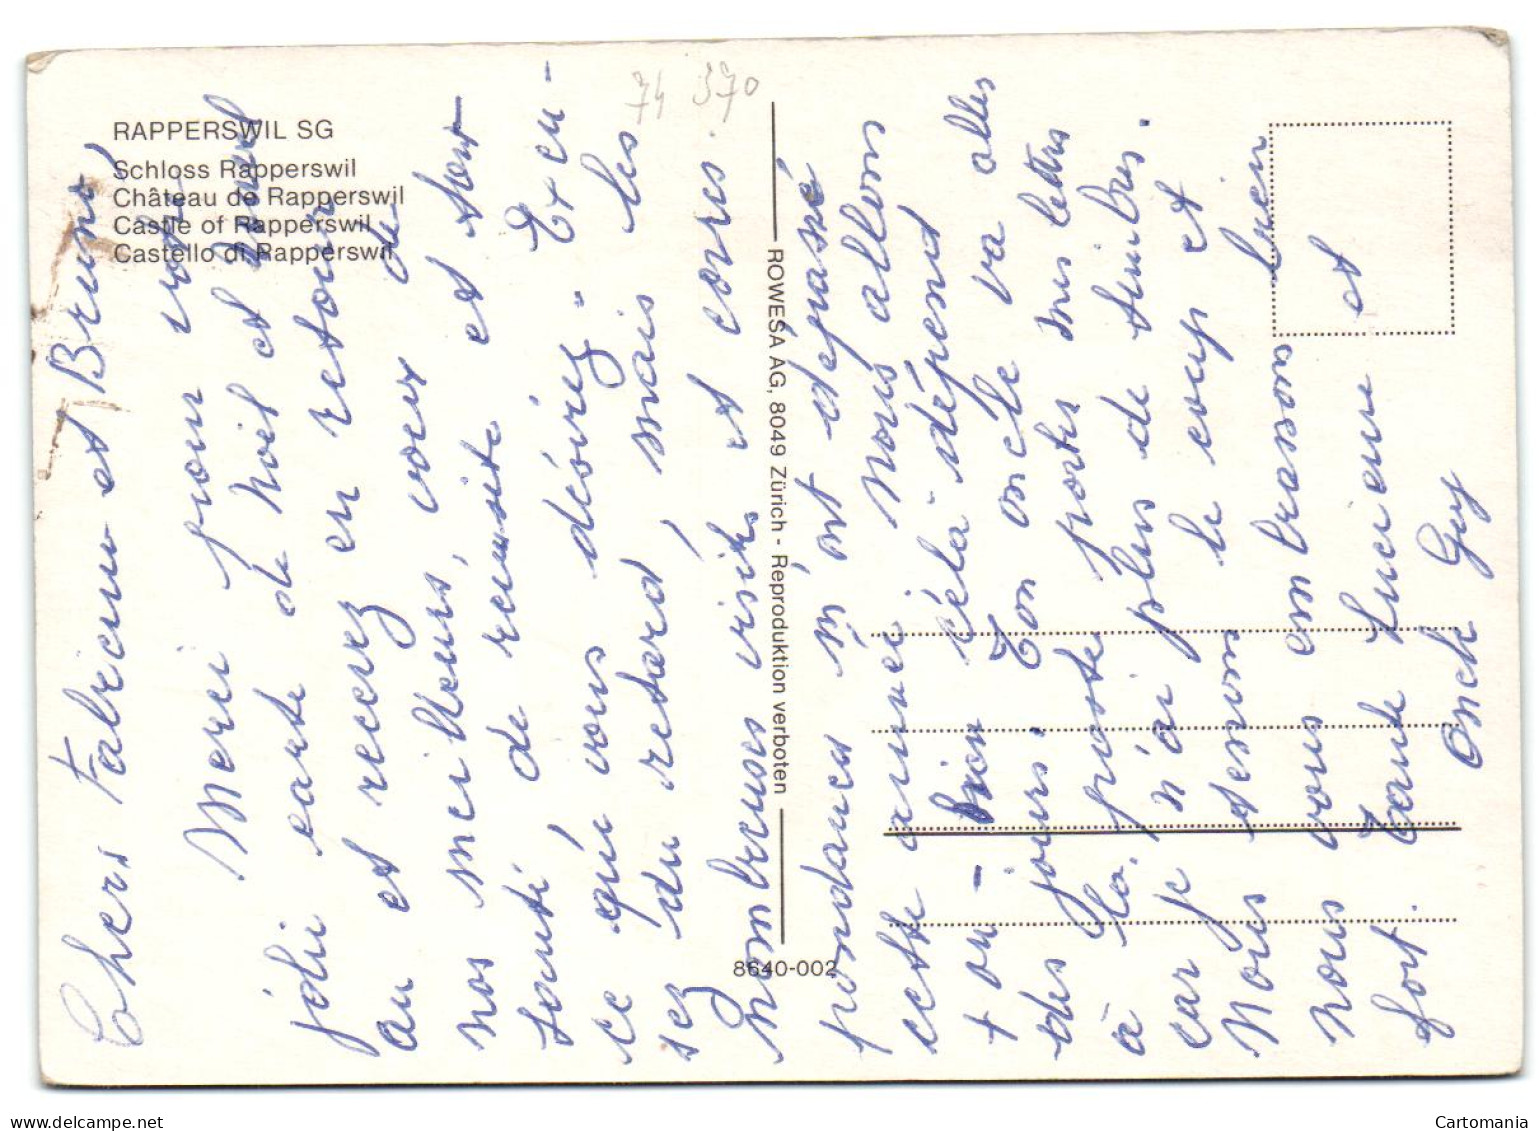 RAPPERSWIL SG
Schloss Rapperswil
Château de Rapperswil
Castle of Rapperswil
Castello di Rapperswil
74 370
ROWESA AG, 8049 Zürich - Reproduktion verboten
8640-002
Chers Fabienne et Bruno,
Merci pour votre
jolie carte de Noël et Nouvel
an et recevez en retour
nos meilleurs voeux de
santé de réussite et tout
ce qui vous désirez. Excu-
sez du retard, mais les
nombreuses visites et corres-
pondances m'ont dépassé
cette année. Nous allons
+ ou - bien cela dépend
des jours. Ton oncle va aller
à la poste porter mes lettres
car je n'ai plus de timbres.
Nous tenons le coup et
nous vous embrassons bien
fort. Tante Lucienne et
Oncle Guy
www.delcampe.net
Cartomania